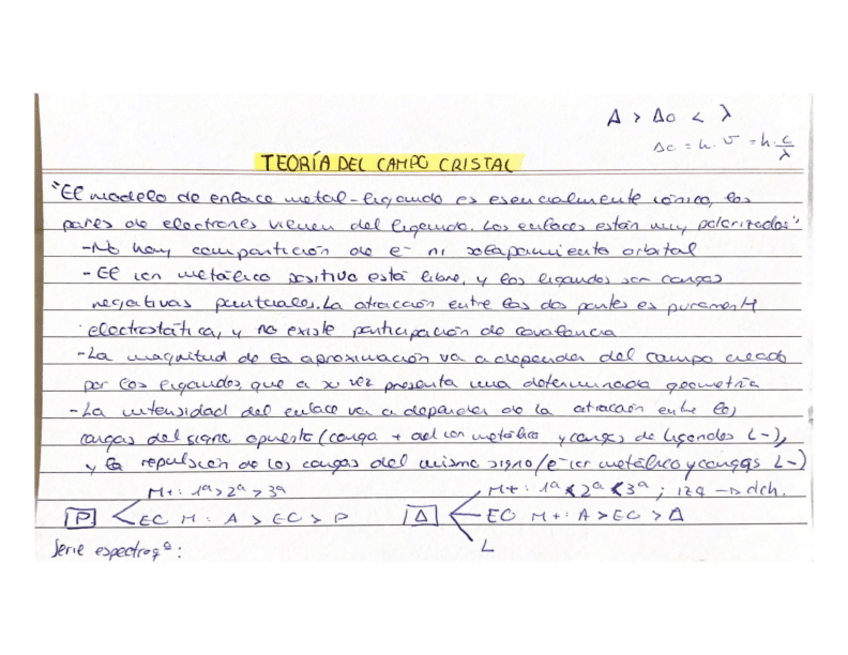 Δ > Δo < λ
Δo = h·ν = h·c/λ
TEORÍA DEL CAMPO CRISTAL
"El modelo de enlace metal-ligando es esencialmente iónico, los
pares de electrones vienen del ligando. Los enlaces están muy polarizados"
-No hay compartición de e- ni solapamiento orbital
-El ion metálico positivo está libre, y los ligandos son cargas
negativas puntuales. La atracción entre las dos partes es
electrostática, y no existe participación de covalencia
-La magnitud de la aproximación va a depender del campo creado
por los ligandos, que a su vez presenta una determinada geometría
-La intensidad del enlace va a depender de la atracción entre las
cargas del signo opuesto (carga + del ion metálico y cargas de ligandos L-),
y la repulsión de las cargas del mismo signo (e- ion metálico y cargas L-)
M+: 1ª > 2ª > 3ª
P
EO M: A > EO > P
M+: 1ª < 2ª < 3ª ; izq → dch.
Δ
EO M+: A > EO > Δ
L
Serie espectroqª: